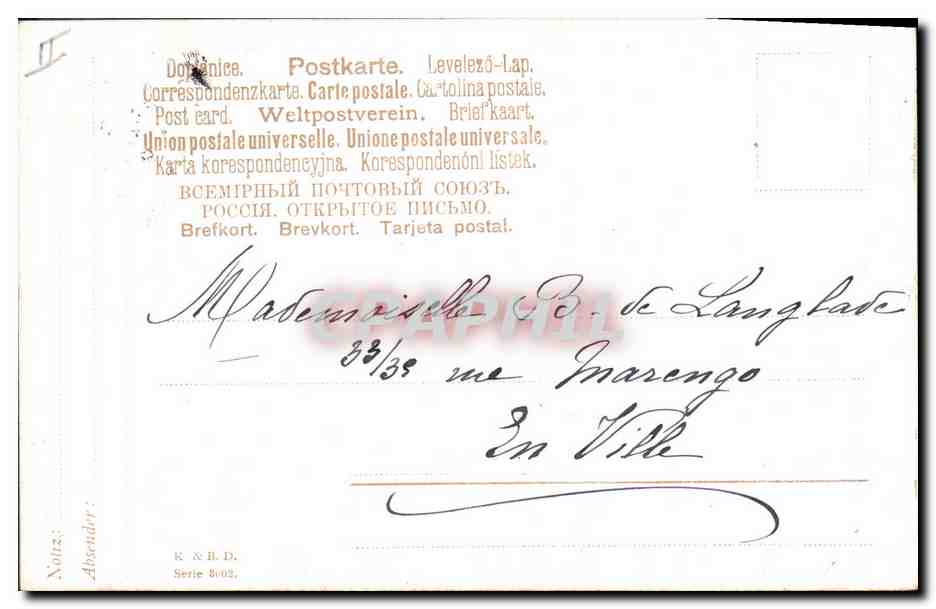 II
Dopisnice. Postkarte. Levelező-Lap.
Correspondenzkarte. Carte postale. Cartolina postale.
Post card. Weltpostverein. Briefkaart.
Union postale universelle. Unione postale universale.
Karta korespondencyjna. Korespondenční lístek.
ВСЕМІРНЫЙ ПОЧТОВЫЙ СОЮЗЪ.
РОССІЯ. ОТКРЫТОЕ ПИСЬМО.
Brefkort. Brevkort. Tarjeta postal.
Mademoiselle B. de Langlade
CPAPHIL
rue Marengo
En Ville
Notiz:
Absender:
K. & B. D.
Serie 3002.